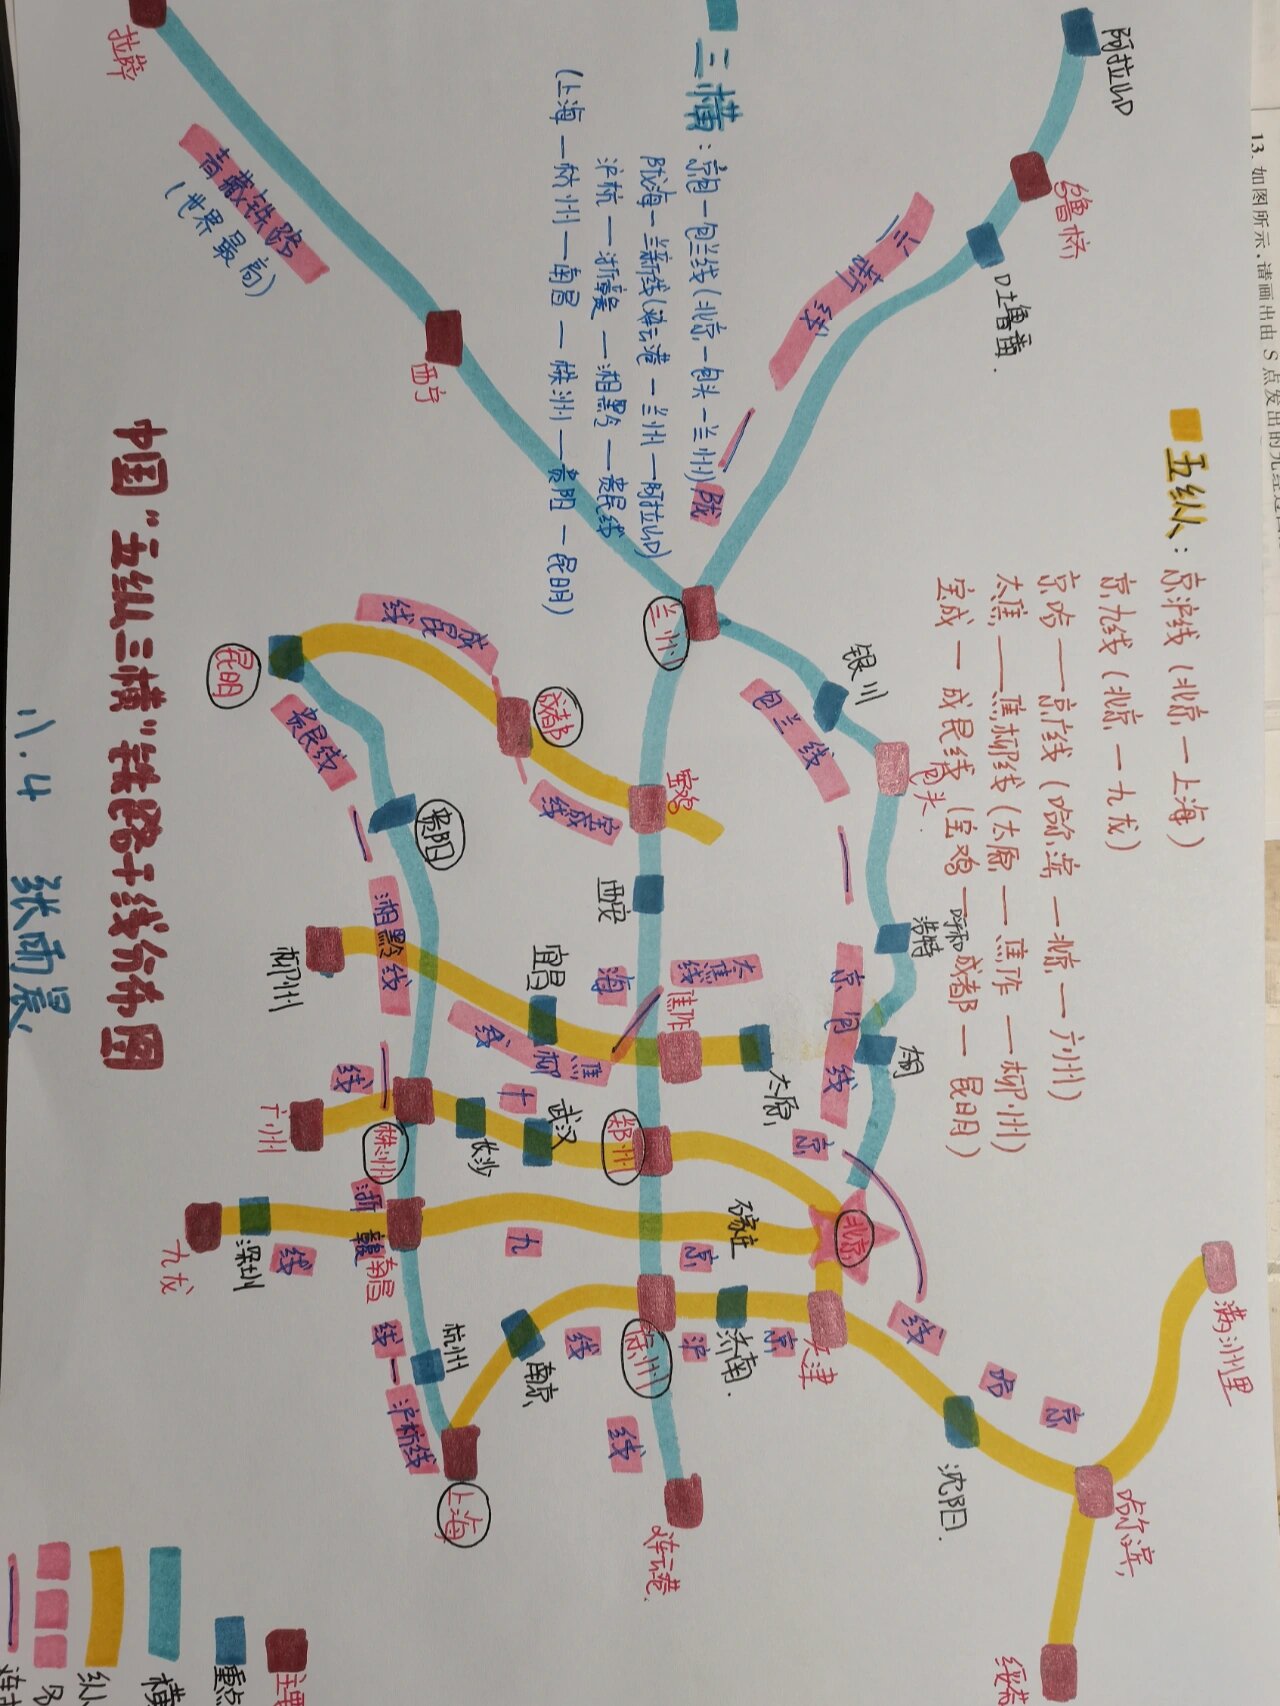 13. 如图所示，请画出由 S 点发出的光经过
五纵：京沪线（北京—上海）
京九线（北京—九龙）
京哈——京广线（哈尔滨—北京—广州）
太焦——焦柳线（太原—焦作—柳州）
宝成—成昆线（宝鸡—成都—昆明）
三横：京包—包兰线（北京—包头—兰州）
陇海—兰新线（连云港—兰州—阿拉山口）
沪杭——浙赣—湘黔—贵昆线
（上海—杭州—南昌—株洲—贵阳—昆明）
阿拉山口
乌鲁木齐
吐鲁番
兰新线
拉萨
青藏铁路
（世界最高）
西宁
陇
兰州
银川
包兰线
包头
呼和
浩特
京包线
大同
满洲里
京
哈
线
哈尔滨
绥芬
沈阳
北京
天津
石家庄
太原
太焦
线
焦作
海
宝鸡
西安
宝成
线
成都
成昆
线
昆明
贵昆线
贵阳
湘黔线
柳州
宜昌
焦
柳
线
京
郑州
武汉
广
长沙
株洲
线
广州
京
九
线
南昌
浙赣
线
深圳
九龙
京
沪
线
济南
徐州
线
连云港
南京
杭州
沪杭线
上海
中国“五纵三横”铁路干线分布图
八.4 张雨晨
主要
重点
横
纵